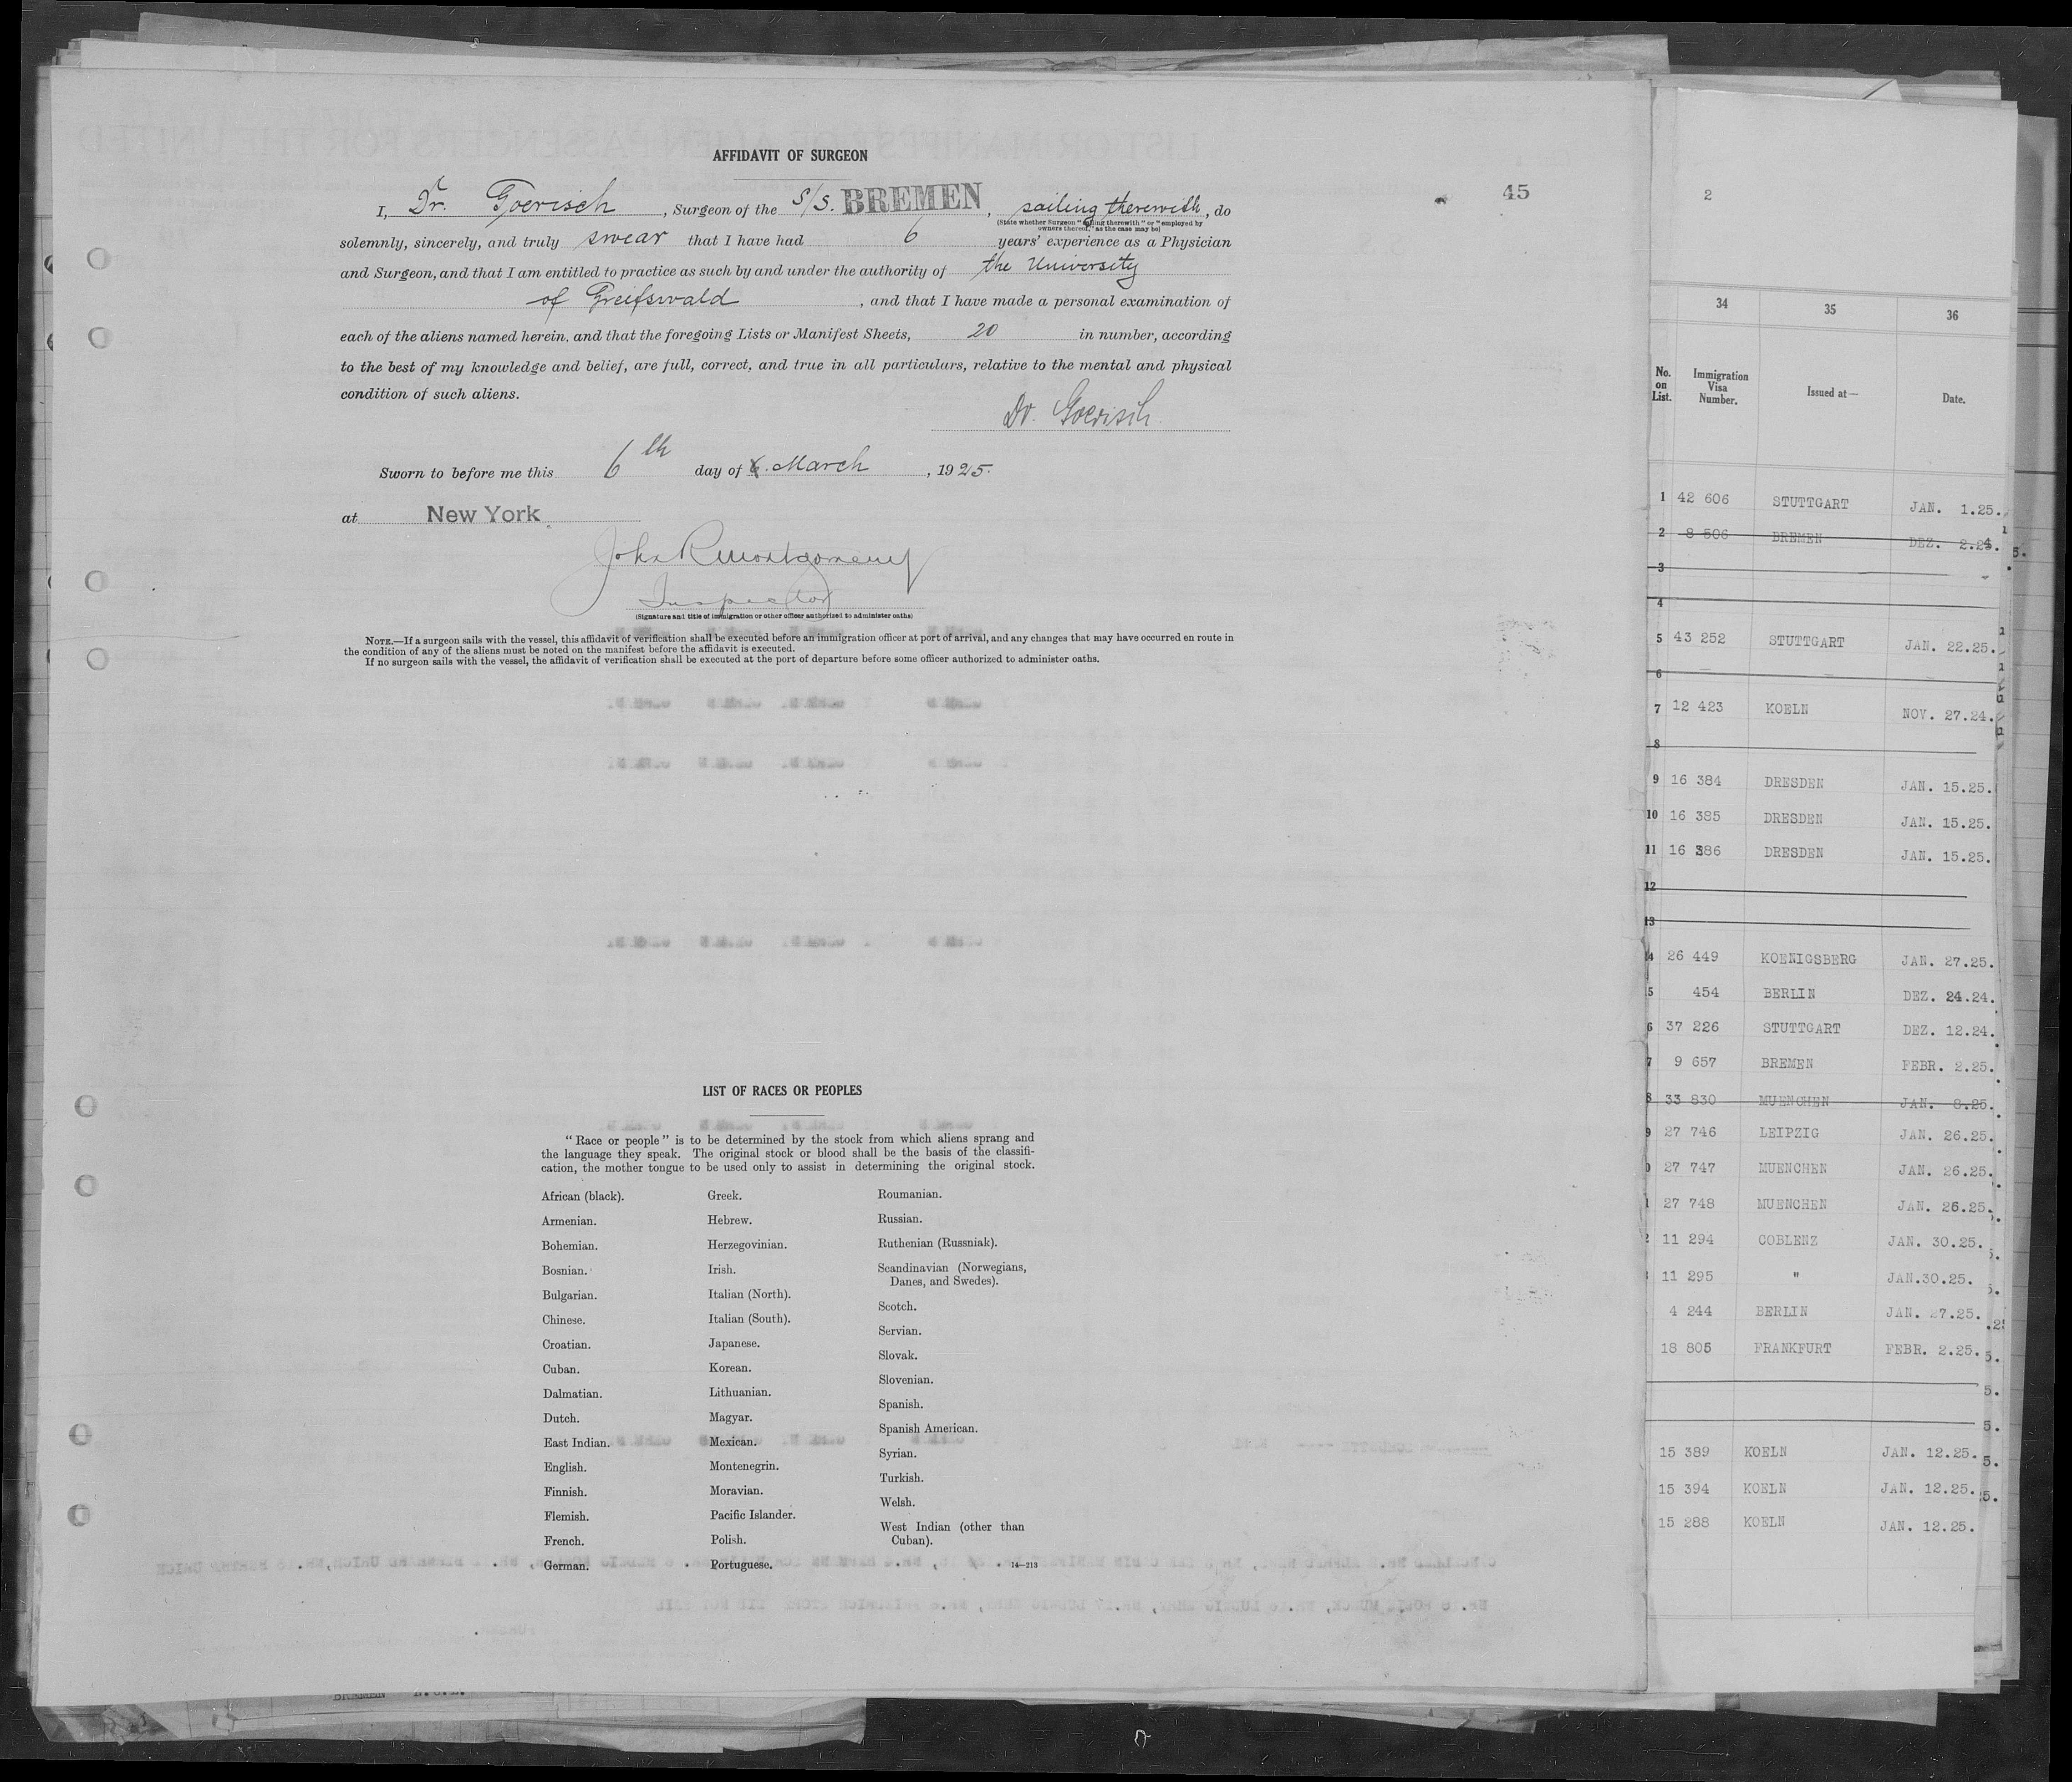 AFFIDAVIT OF SURGEON
I, Dr. Goerisch, Surgeon of the S/S. BREMEN, sailing therewith, do
(State whether Surgeon "sailing therewith" or "employed by
owners thereof," as the case may be)
solemnly, sincerely, and truly swear that I have had 6 years' experience as a Physician
and Surgeon, and that I am entitled to practice as such by and under the authority of the University
of Greifswald, and that I have made a personal examination of
each of the aliens named herein, and that the foregoing Lists or Manifest Sheets, 20 in number, according
to the best of my knowledge and belief, are full, correct, and true in all particulars, relative to the mental and physical
condition of such aliens.
Dr. Goerisch
Sworn to before me this 6th day of March, 1925.
at New York
John R Montgomery
Inspector
(Signature and title of immigration or other officer authorized to administer oaths)
NOTE.—If a surgeon sails with the vessel, this affidavit of verification shall be executed before an immigration officer at port of arrival, and any changes that may have occurred en route in
the condition of any of the aliens must be noted on the manifest before the affidavit is executed.
If no surgeon sails with the vessel, the affidavit of verification shall be executed at the port of departure before some officer authorized to administer oaths.
LIST OF RACES OR PEOPLES
"Race or people" is to be determined by the stock from which aliens sprang and
the language they speak. The original stock or blood shall be the basis of the classifi-
cation, the mother tongue to be used only to assist in determining the original stock.
African (black).
Armenian.
Bohemian.
Bosnian.
Bulgarian.
Chinese.
Croatian.
Cuban.
Dalmatian.
Dutch.
East Indian.
English.
Finnish.
Flemish.
French.
German.
Greek.
Hebrew.
Herzegovinian.
Irish.
Italian (North).
Italian (South).
Japanese.
Korean.
Lithuanian.
Magyar.
Mexican.
Montenegrin.
Moravian.
Pacific Islander.
Polish.
Portuguese.
Roumanian.
Russian.
Ruthenian (Russniak).
Scandinavian (Norwegians,
Danes, and Swedes).
Scotch.
Servian.
Slovak.
Slovenian.
Spanish.
Spanish American.
Syrian.
Turkish.
Welsh.
West Indian (other than
Cuban).
14—213
45
2
34 35 36
No. on List. Immigration Visa Number. Issued at— Date.
1 42 606 STUTTGART JAN. 1.25.
2 8 506 BREMEN DEZ. 2.24.
3
4
5 43 252 STUTTGART JAN. 22.25.
6
7 12 423 KOELN NOV. 27.24.
8
9 16 384 DRESDEN JAN. 15.25.
10 16 385 DRESDEN JAN. 15.25.
11 16 386 DRESDEN JAN. 15.25.
12
13
4 26 449 KOENIGSBERG JAN. 27.25.
5 454 BERLIN DEZ. 24.24.
6 37 226 STUTTGART DEZ. 12.24.
7 9 657 BREMEN FEBR. 2.25.
8 33 830 MUENCHEN JAN. 8.25.
9 27 746 LEIPZIG JAN. 26.25.
0 27 747 MUENCHEN JAN. 26.25.
1 27 748 MUENCHEN JAN. 26.25.
2 11 294 COBLENZ JAN. 30.25.
11 295 " JAN.30.25.
4 244 BERLIN JAN. 27.25.
18 805 FRANKFURT FEBR. 2.25.
15 389 KOELN JAN. 12.25.
15 394 KOELN JAN. 12.25.
15 288 KOELN JAN. 12.25.
BREMEN